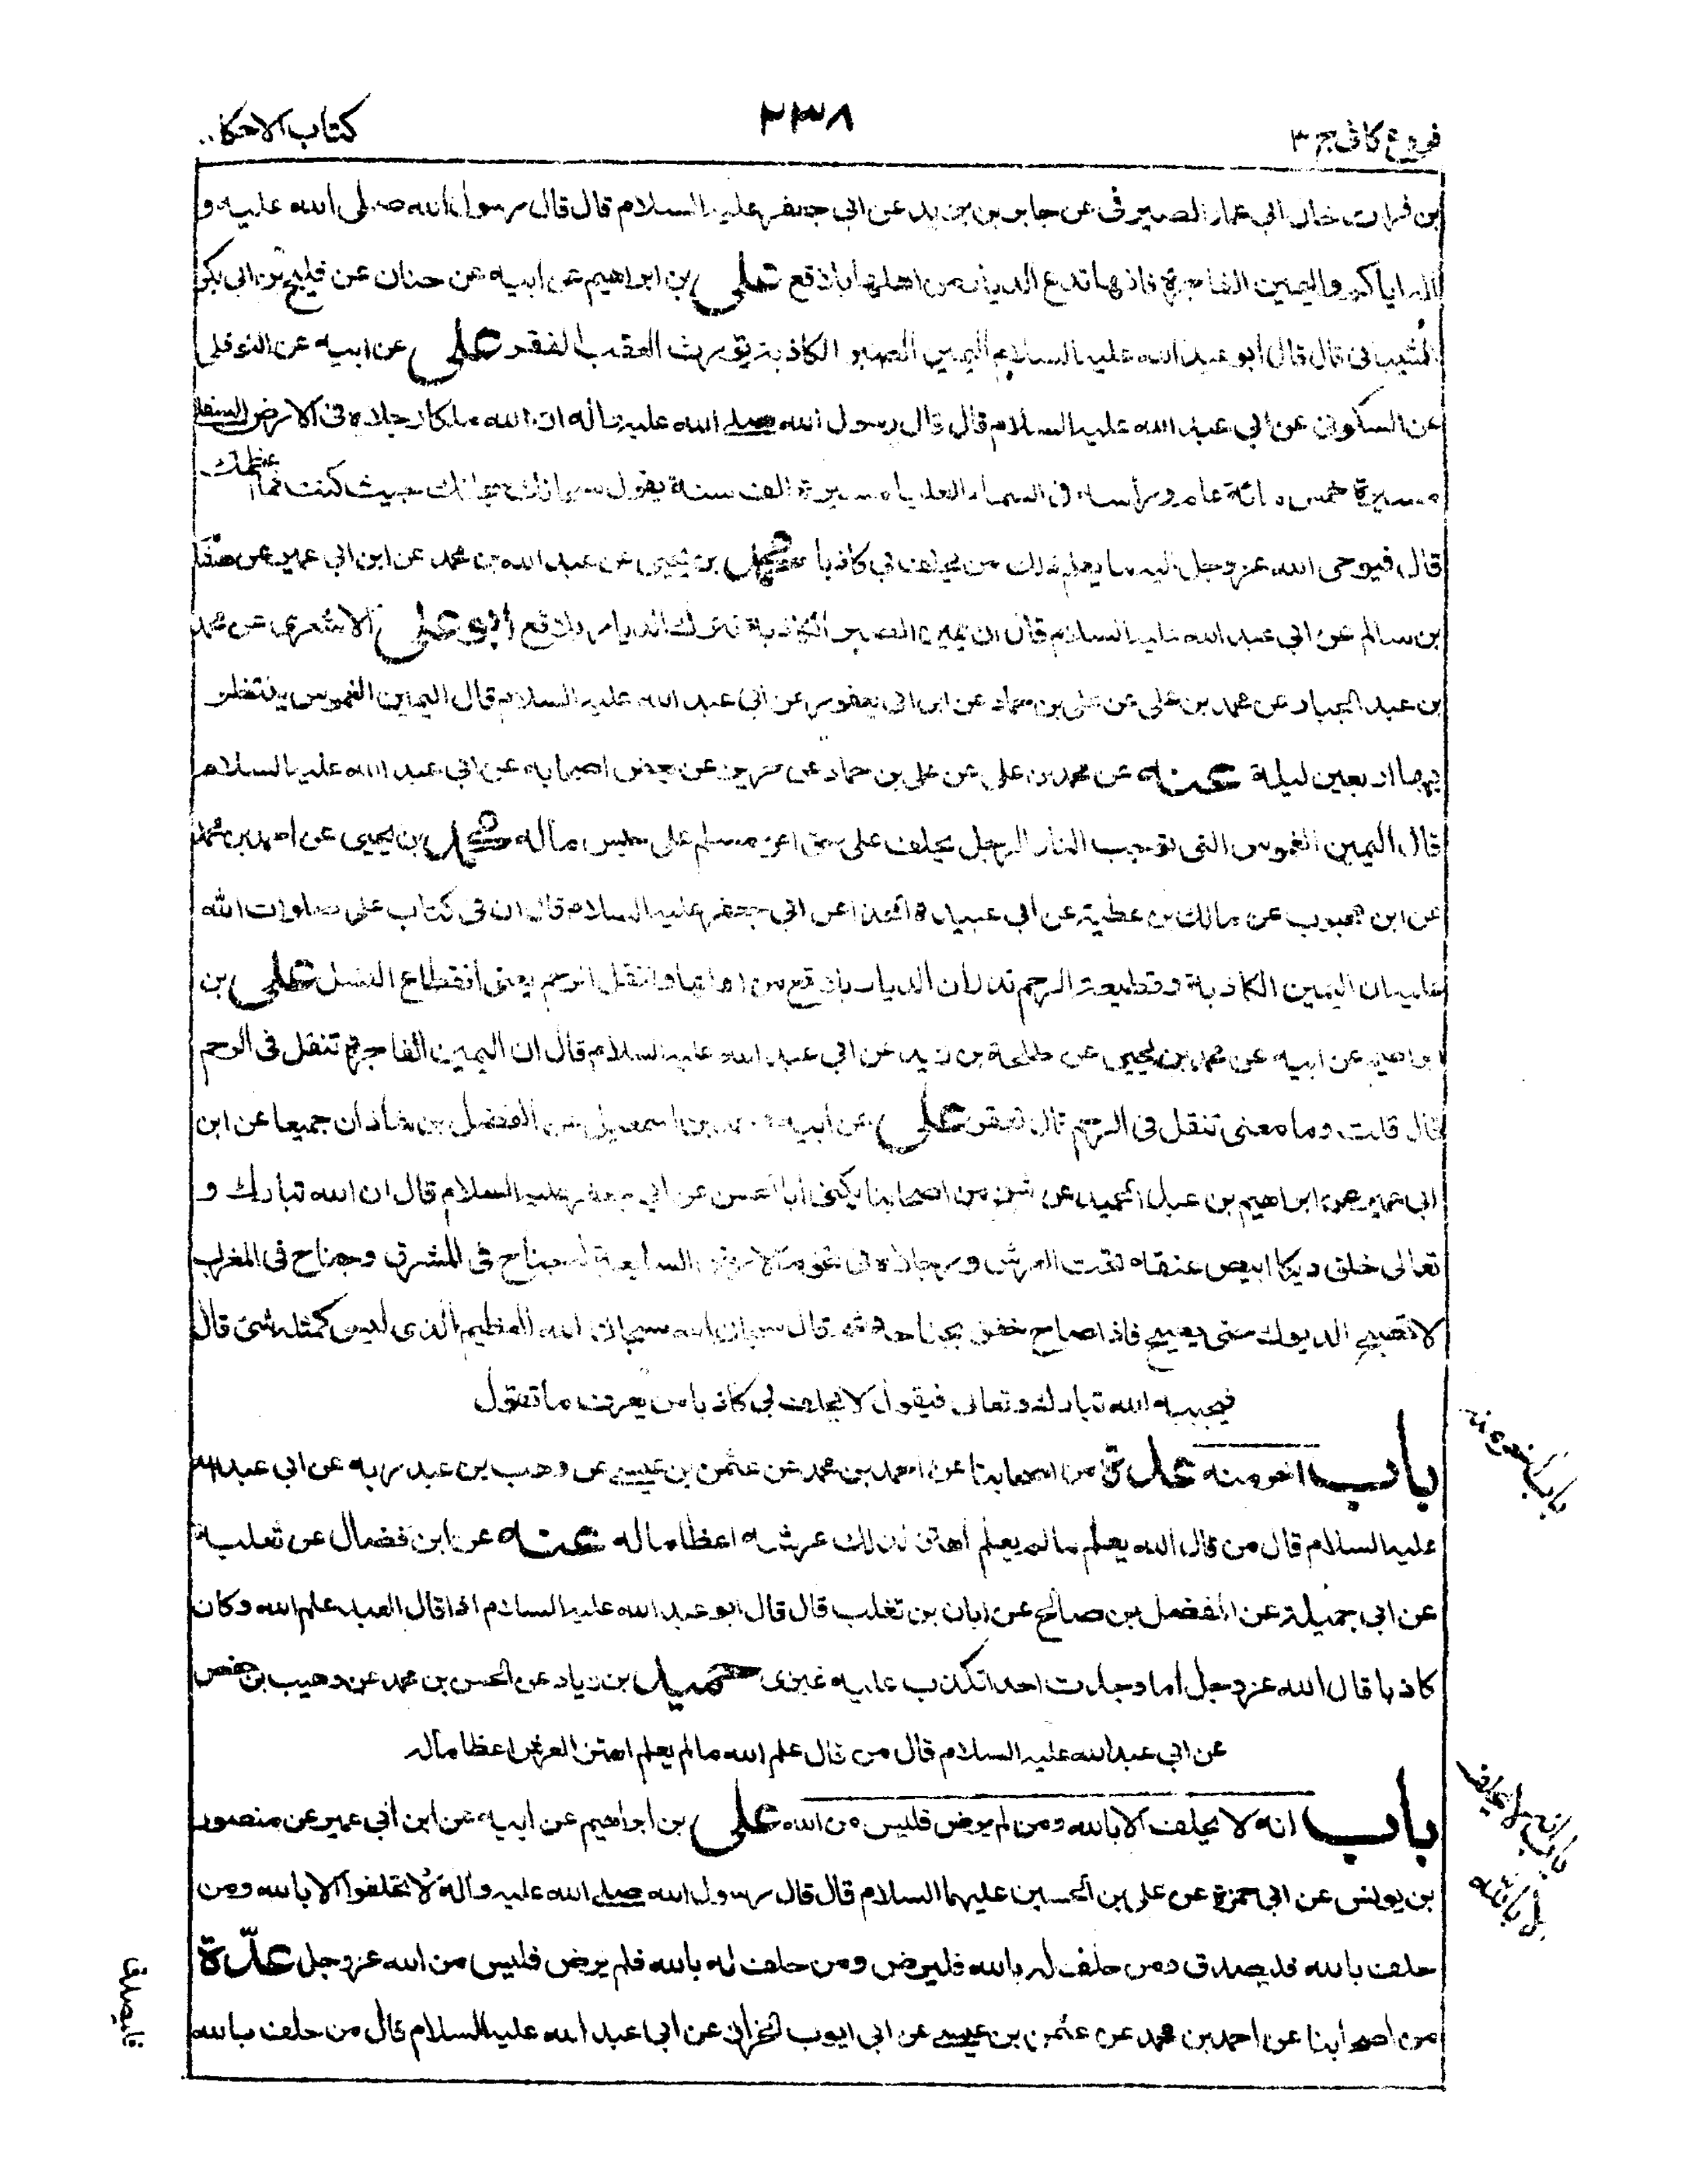 فروع كافى ج ٣
٢٣٨
كتاب الاحكا
بن فرات خال ابى عمار الصيرفى عن جابر بن يزيد عن ابى جعفر عليه السلام قال قال رسول الله صلى الله عليه و
اله اياكم واليمين الفاجرة فانها تدع الديار من اهلها بلاقع على بن ابراهيم عن ابيه عن حنان عن فليح بن ابى بكر
الشيبانى قال قال ابو عبد الله عليه السلام اليمين الصبر الكاذبة تورث العقب الفقر على عن ابيه عن النوفلى
عن السكونى عن ابى عبد الله عليه السلام قال قال رسول الله صلى الله عليه واله ان لله ملكا رجلاه فى الارض السفلى
مسيرة خمس مائة عام ورأسه فى السماء العليا مسيرة الف سنة يقول سبحانك سبحانك حيث كنت فما اعظمك
قال فيوحى الله عزوجل اليه ما يعلم ذلك من يحلف بى كاذبا محمد بن يحيى عن عبد الله بن محمد عن ابن ابى عمير عن هشا
بن سالم عن ابى عبد الله عليه السلام قال ان يمين الصبر الكاذبة تترك الديار بلاقع ابو على الاشعرى عن محمد
بن عبد الجبار عن محمد بن على عن على بن حماد عن ابن ابى يعفور عن ابى عبد الله عليه السلام قال اليمين الغموس ينتظر
بها اربعين ليلة عنه عن محمد بن على عن على بن حماد عن حريز عن بعض اصحابه عن ابى عبد الله عليه السلام
قال اليمين الغموس التى توجب النار الرجل يحلف على حق امرء مسلم على حبس ماله محمد بن يحيى عن احمد بن محمد
عن ابن محبوب عن مالك بن عطية عن ابى عبيدة الحذا عن ابى جعفر عليه السلام قال ان فى كتاب على صلوات الله
عليه ان اليمين الكاذبة وقطيعة الرحم تذران الديار بلاقع من اهلها وتنقل الرحم يعنى انقطاع النسل على بن
ابراهيم عن ابيه عن محمد بن يحيى عن طلحة بن زيد عن ابى عبد الله عليه السلام قال ان اليمين الفاجرة تنقل فى الرحم
قال قلت وما معنى تنقل فى الرحم قال تعقر على عن ابيه ومحمد بن اسمعيل عن الفضل بن شاذان جميعا عن ابن
ابى عمير عن ابراهيم بن عبد الحميد عن شيخ من اصحابنا يكنى ابا الحسن عن ابى جعفر عليه السلام قال ان الله تبارك و
تعالى خلق ديكا ابيض عنقه تحت العرش ورجلاه فى تخوم الارض السابعة له جناح فى المشرق وجناح فى المغرب
لا تصيح الديوك حتى يصيح فاذا صاح خفق بجناحيه ثم قال سبحان الله سبحان الله العظيم الذى ليس كمثله شئ قال
فيجيبه الله تبارك وتعالى فيقول لا يحلف بى كاذبا من يعرف ما تقول
باب اخر منه عدة من اصحابنا عن احمد بن محمد عن عثمن بن عيسى عن وهب بن عبد ربه عن ابى عبد الله
عليه السلام قال من قال الله يعلم ما لم يعلم اهتز لذلك عرشه اعظاما له عنه عن ابن فضال عن ثعلبة
عن ابى جميلة عن المفضل بن صالح عن ابان بن تغلب قال قال ابو عبد الله عليه السلام اذا قال العبد علم الله وكان
كاذبا قال الله عزوجل اما وجدت احدا تكذب عليه غيرى حميد بن زياد عن الحسن بن محمد عن وهيب بن حفص
عن ابى عبد الله عليه السلام قال من قال علم الله ما لم يعلم اهتز العرش اعظاما له
باب انه لا يحلف الا بالله ومن لم يرض فليس من الله على بن ابراهيم عن ابيه عن ابن ابى عمير عن منصور
بن يونس عن ابى حمزة عن على بن الحسين عليهما السلام قال قال رسول الله صلى الله عليه واله لا تحلفوا الا بالله ومن
حلف بالله فليصدق ومن حلف له بالله فليرض ومن حلف له بالله فلم يرض فليس من الله عزوجل عدّة
من اصحابنا عن احمد بن محمد عن عثمن بن عيسى عن ابى ايوب الخزاز عن ابى عبد الله عليه السلام قال من حلف بالله
باب اخر منه
باب انه لا يحلف
الا بالله
فليصدق